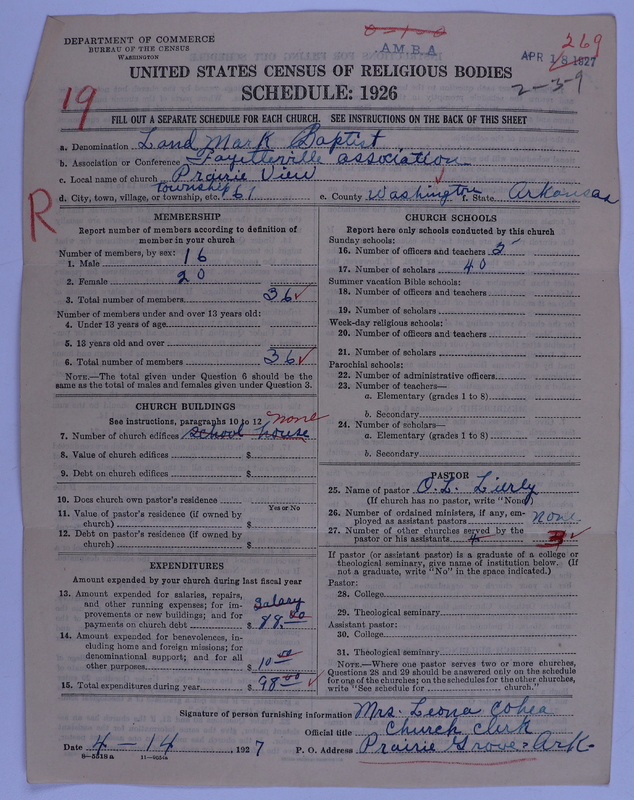 DEPARTMENT OF COMMERCE
BUREAU OF THE CENSUS
WASHINGTON
0-1-0
AMBA
APR 18 1927
269
2-3-9
UNITED STATES CENSUS OF RELIGIOUS BODIES
SCHEDULE: 1926
19
FILL OUT A SEPARATE SCHEDULE FOR EACH CHURCH. SEE INSTRUCTIONS ON THE BACK OF THIS SHEET
a. Denomination Land Mark Baptist
b. Association or Conference Fayetteville association
c. Local name of church Prairie View
d. City, town, village, or township, etc. township 61 e. County Washington f. State Arkansas
R
MEMBERSHIP
Report number of members according to definition of
member in your church
Number of members, by sex:
1. Male 16
2. Female 20
3. Total number of members 36 ✓
Number of members under and over 13 years old:
4. Under 13 years of age
5. 13 years old and over
6. Total number of members 36 ✓
NOTE.—The total given under Question 6 should be the
same as the total of males and females given under Question 3.
CHURCH BUILDINGS
See instructions, paragraphs 10 to 12 none
7. Number of church edifices school house
8. Value of church edifices $
9. Debt on church edifices $
10. Does church own pastor's residence
Yes or No
11. Value of pastor's residence (if owned by
church) $
12. Debt on pastor's residence (if owned by
church) $
EXPENDITURES
Amount expended by your church during last fiscal year
13. Amount expended for salaries, repairs,
and other running expenses; for im-
provements or new buildings; and for
payments on church debt $ Salary 88.00
14. Amount expended for benevolences, in-
cluding home and foreign missions; for
denominational support; and for all
other purposes $ 10.00
15. Total expenditures during year $ 98.00 ✓
CHURCH SCHOOLS
Report here only schools conducted by this church
Sunday schools:
16. Number of officers and teachers 5
17. Number of scholars 40
Summer vacation Bible schools:
18. Number of officers and teachers
19. Number of scholars
Week-day religious schools:
20. Number of officers and teachers
21. Number of scholars
Parochial schools:
22. Number of administrative officers
23. Number of teachers—
a. Elementary (grades 1 to 8)
b. Secondary
24. Number of scholars—
a. Elementary (grades 1 to 8)
b. Secondary
PASTOR
25. Name of pastor O. L. Lierly
(If church has no pastor, write "None")
26. Number of ordained ministers, if any, em-
ployed as assistant pastors none
27. Number of other churches served by the
pastor or his assistants 4 3 ✓
If pastor (or assistant pastor) is a graduate of a college or
theological seminary, give name of institution below. (If
not a graduate, write "No" in the space indicated.)
Pastor:
28. College
29. Theological seminary
Assistant pastor:
30. College
31. Theological seminary
NOTE.—Where one pastor serves two or more churches,
Questions 28 and 29 should be answered only on the schedule
for one of the churches; on the schedules for the other churches,
write "See schedule for church."
Signature of person furnishing information Mrs. Leona Cohea
Official title Church Clerk
Date 4-14, 1927 P. O. Address Prairie Grove, Ark-
8-5518a 11-9054a